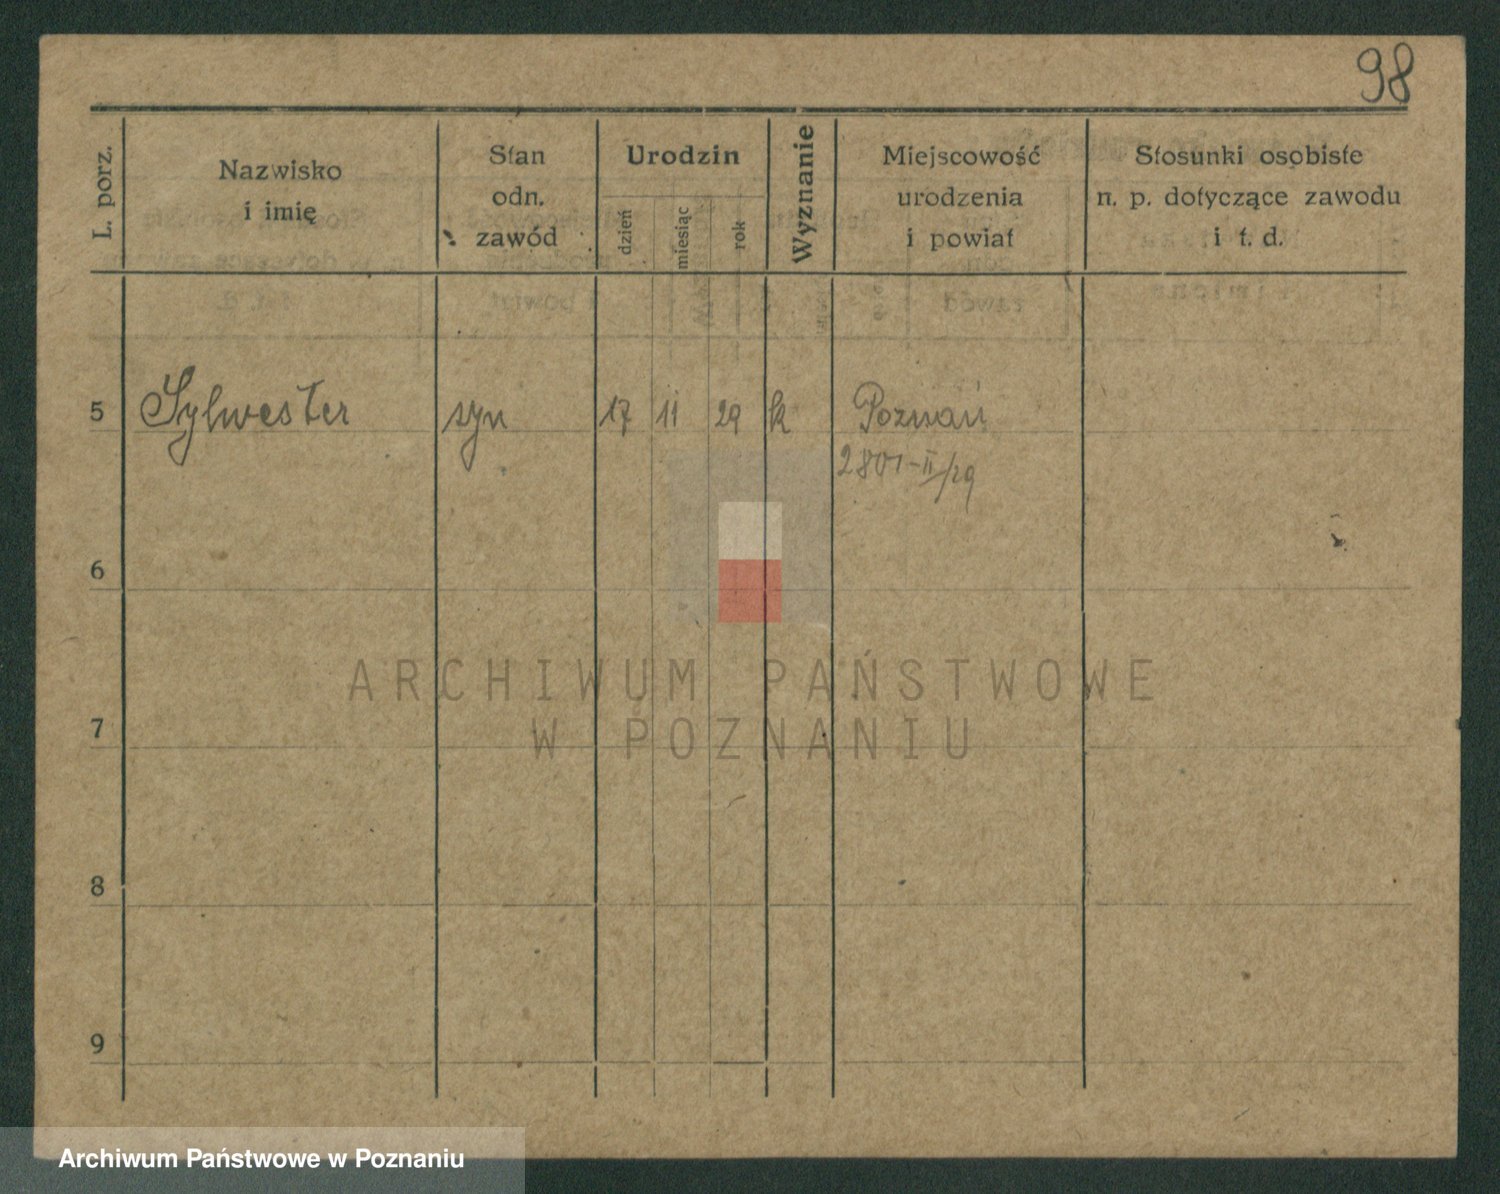 98
L. porz.
Nazwisko
i imię
Stan
odn.
zawód
Urodzin
dzień
miesiąc
rok
Wyznanie
Miejscowość
urodzenia
i powiat
Stosunki osobiste
n. p. dotyczące zawodu
i t. d.
5 Sylwester syn 17 11 29 k Poznań
2801-II/29
6
7
8
9
ARCHIWUM PAŃSTWOWE
W POZNANIU
Archiwum Państwowe w Poznaniu